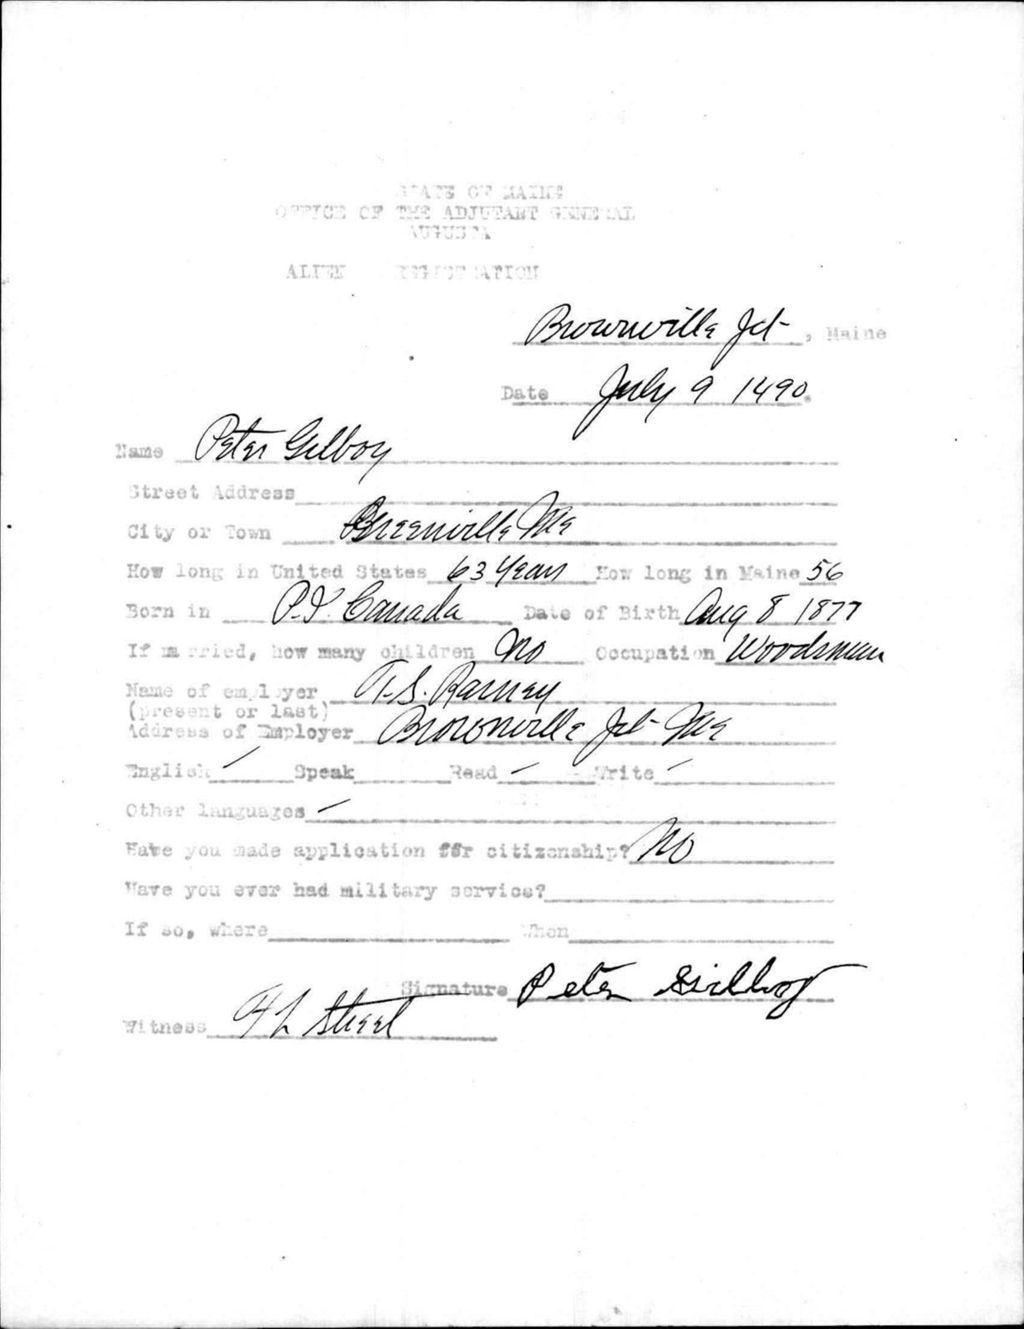 STATE OF MAINE
OFFICE OF THE ADJUTANT GENERAL
AUGUSTA
ALIEN REGISTRATION
Brownville Jct , Maine
Date July 9 1490.
Name Peter Gilboy
Street Address
City or Town Greenville Me
How long in United States 63 Years How long in Maine 56
Born in P.I. Canada Date of Birth Aug 8 1877
If married, how many children No Occupation Woodsman
Name of employer T.S. Ranney
(present or last)
Address of Employer Brownville Jct Me
English / Speak Read / Write /
Other languages /
Have you made application for citizenship? No
Have you ever had military service?
If so, where When
Signature Peter Gillboy
Witness H L Steel